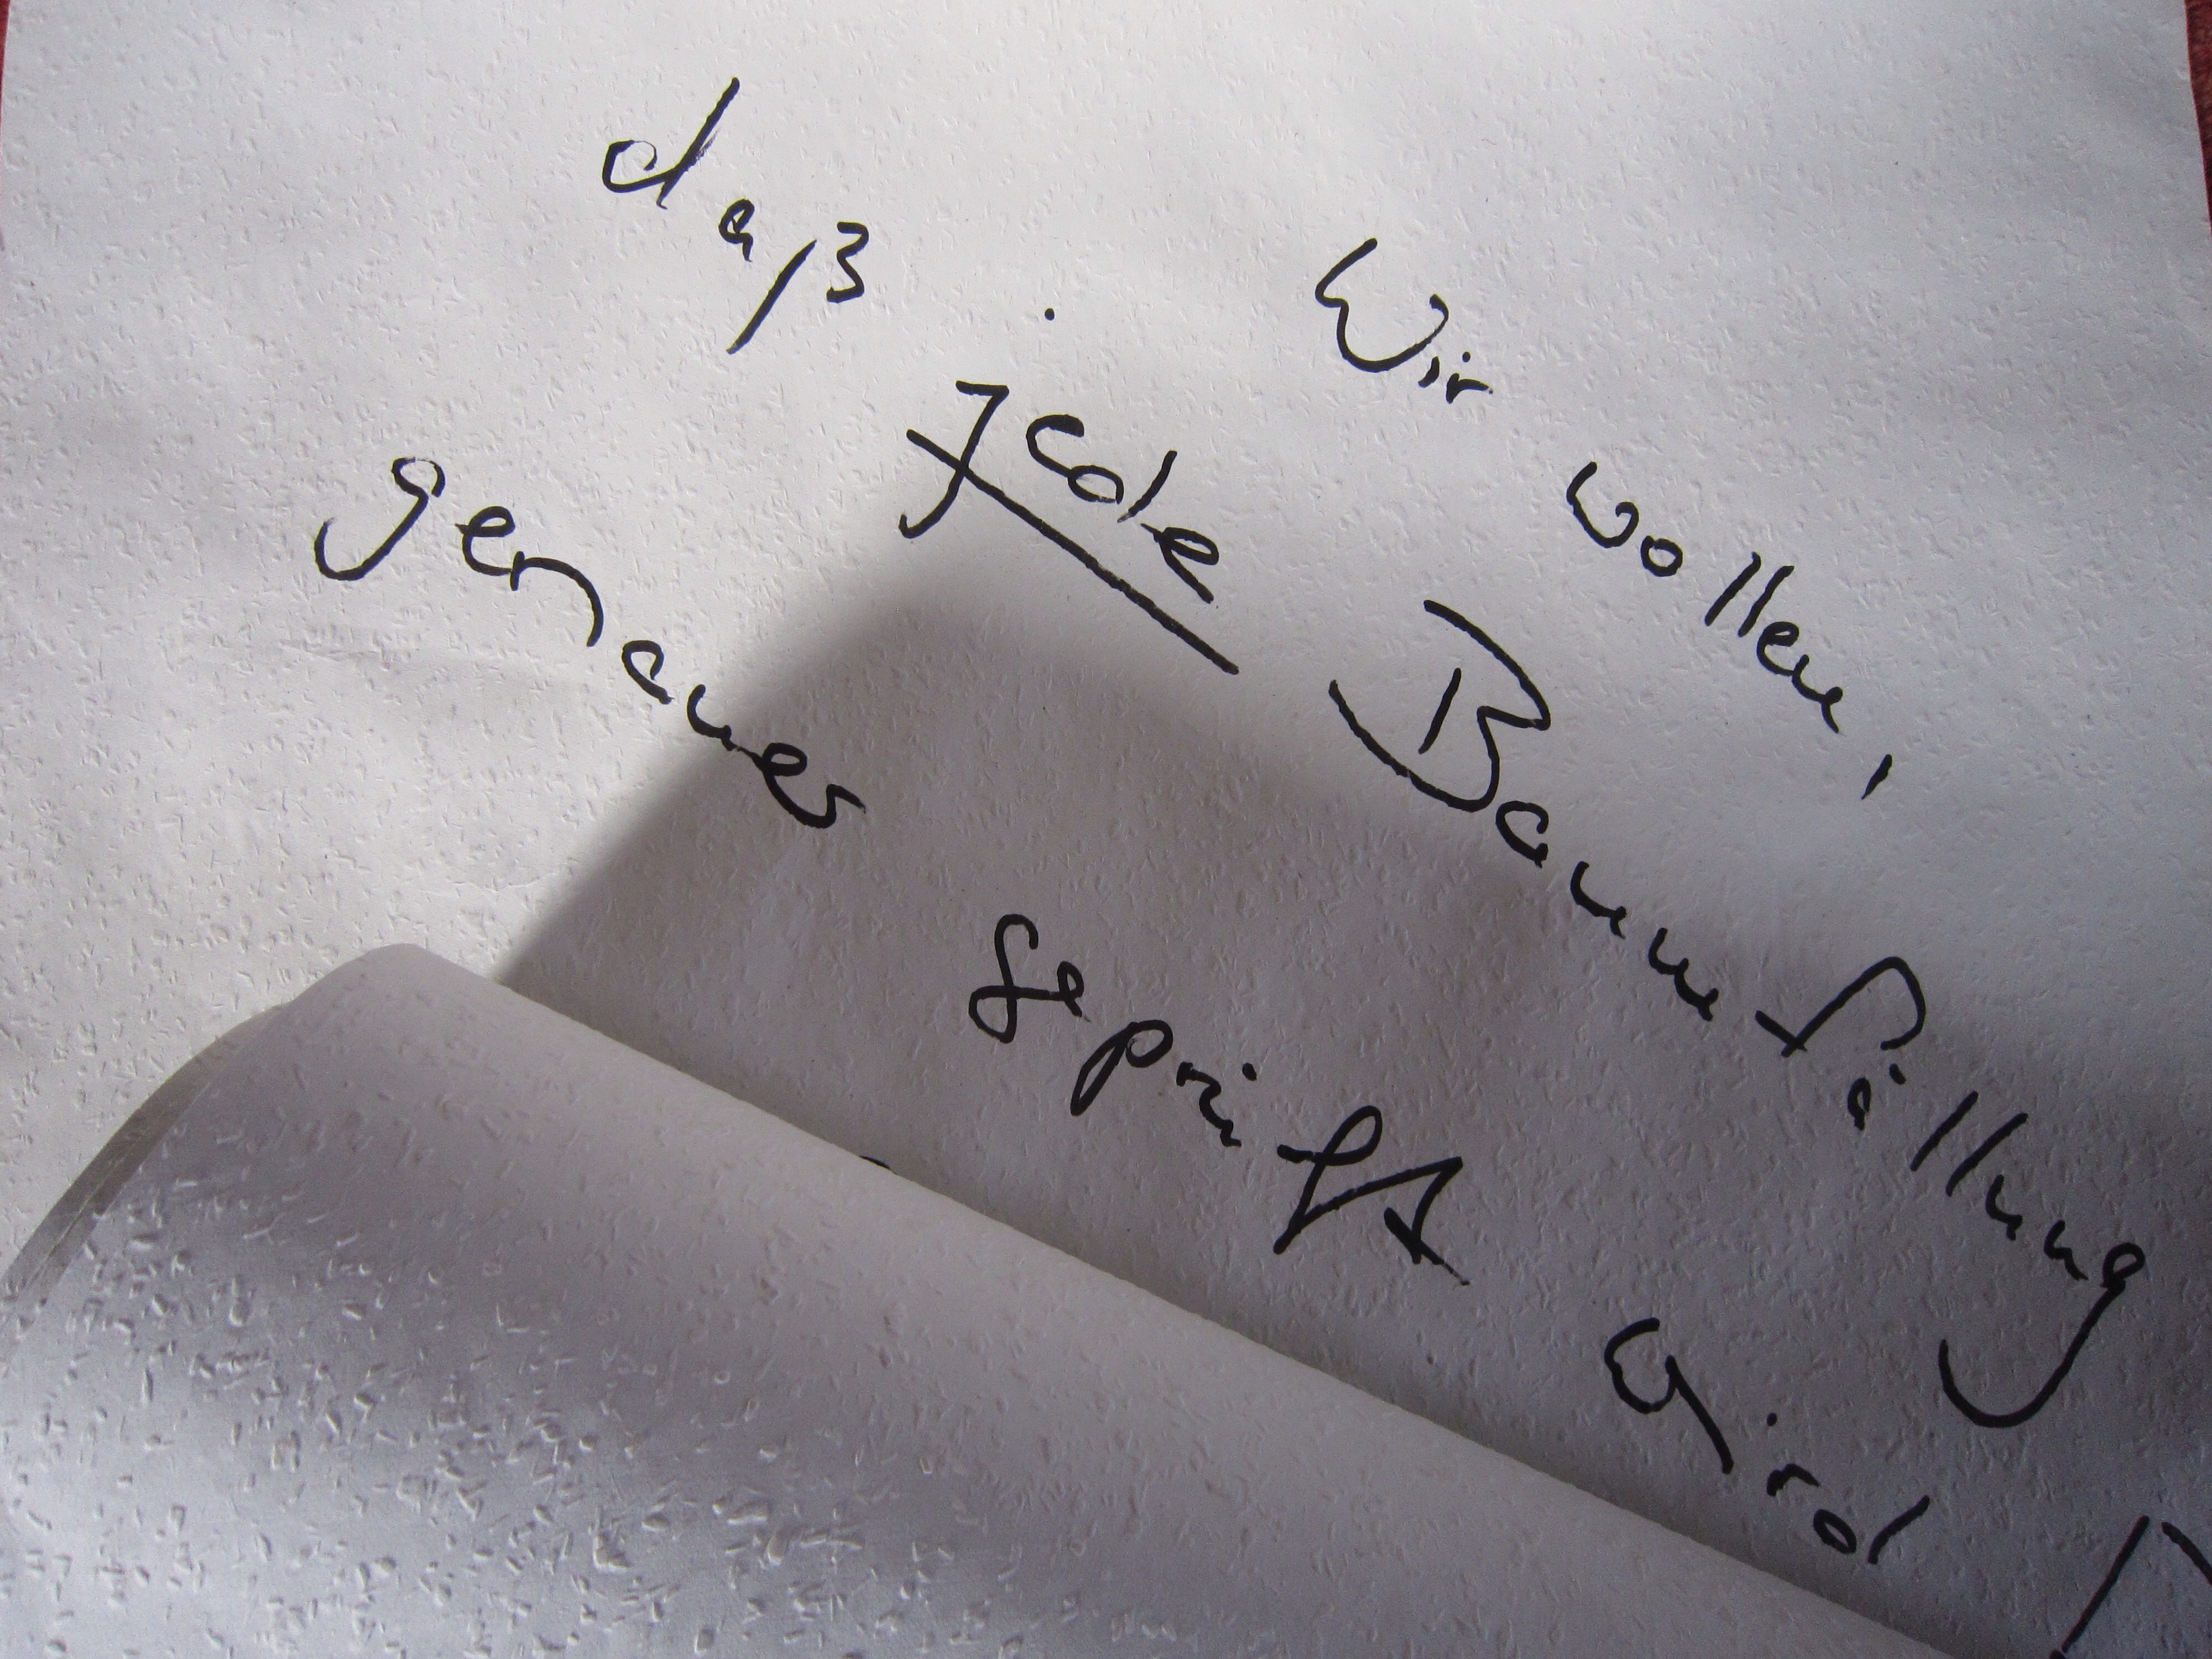 Wir wollen,
daß jede Baumfällung
genauer geprüft wird